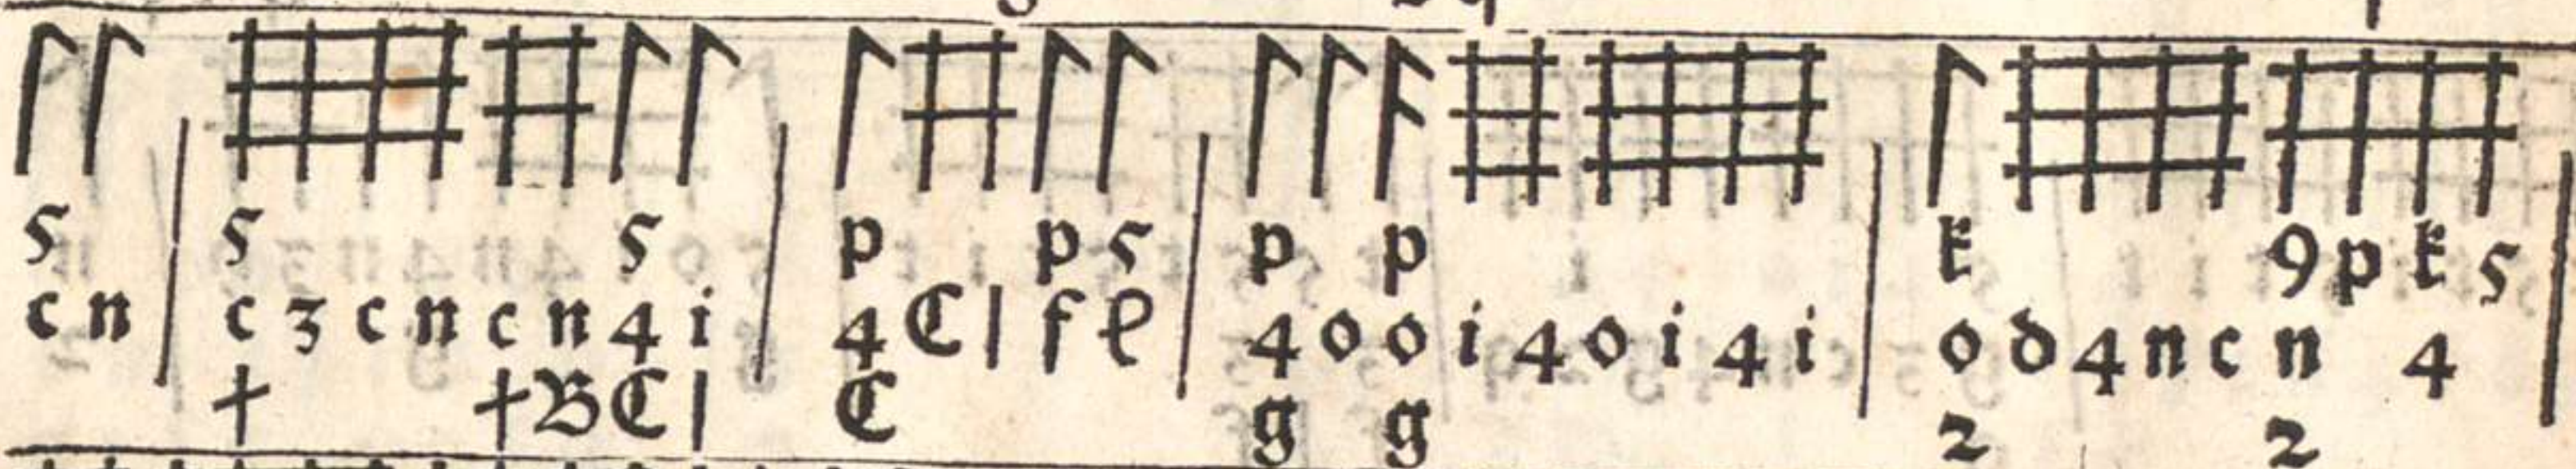 5 | 5 5 | p p 5 | p p | k 9 p k 5 |
c n | c 3 c n c n 4 i | 4 C l f e | 4 o o i 4 o i 4 i | o d 4 n c n 4 |
† † B C l | C | g g | 2 2 |